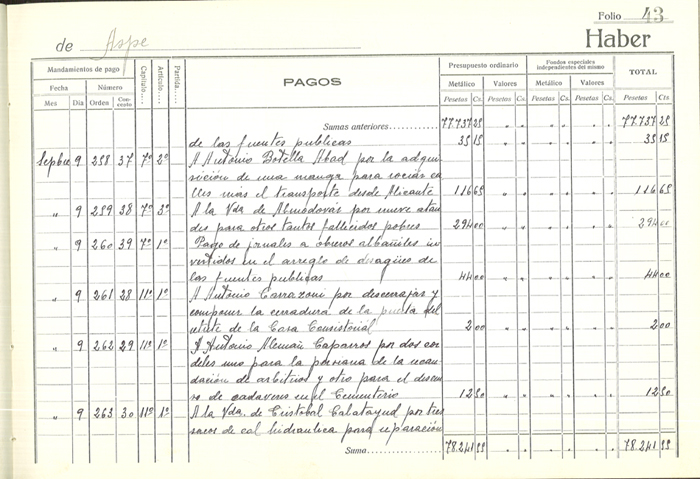 Folio 43
de Aspe
Haber
Mandamientos de pago
Fecha
Número
Mes
Día
Orden
Concepto
Capítulo....
Artículo....
Partida....
PAGOS
Presupuesto ordinario
Metálico
Valores
Pesetas Cs. Pesetas Cs.
Fondos especiales independientes del mismo
Metálico
Valores
Pesetas Cs. Pesetas Cs.
TOTAL
Pesetas Cts
Sumas anteriores 77.737 25 " " " " " " 77.737 25
de las fuentes publicas 35 15 " " " " " " 35 15
Sepbre 9 258 37 7º 2º A Antonio Botella Abad por la adqui-
sición de una manga para rociar ca-
lles más el transporte desde Alicante 116 65 " " " " " " 116 65
" 9 259 38 7º 3º A la Vda de Almodovar por nueve atau
des para otros tantos fallecidos pobres 294 00 " " " " " " 294 00
" 9 260 39 7º 1º Pago de jornales a obreros albañiles in-
vertidos en el arreglo de desagües de
las fuentes publicas 44 00 " " " " " " 44 00
" 9 261 28 11º 1º A Antonio Carrazoni por descerrajar y
componer la cerradura de la puerta del
retrete de la Casa Consistorial 2 00 " " " " " " 2 00
" 9 262 29 11º 1º A Antonio Alemañ Caparros por dos cor
deles uno para la persiana de la recau-
dación de arbitrios y otro para el descen
so de cadaveres en el Cementerio 12 50 " " " " " " 12 50
" 9 263 30 11º 1º A la Vda. de Cristobal Calatayud por tres
sacos de cal hidraulica para reparación
Suma 78.241 55 " " " " " " 78.241 55